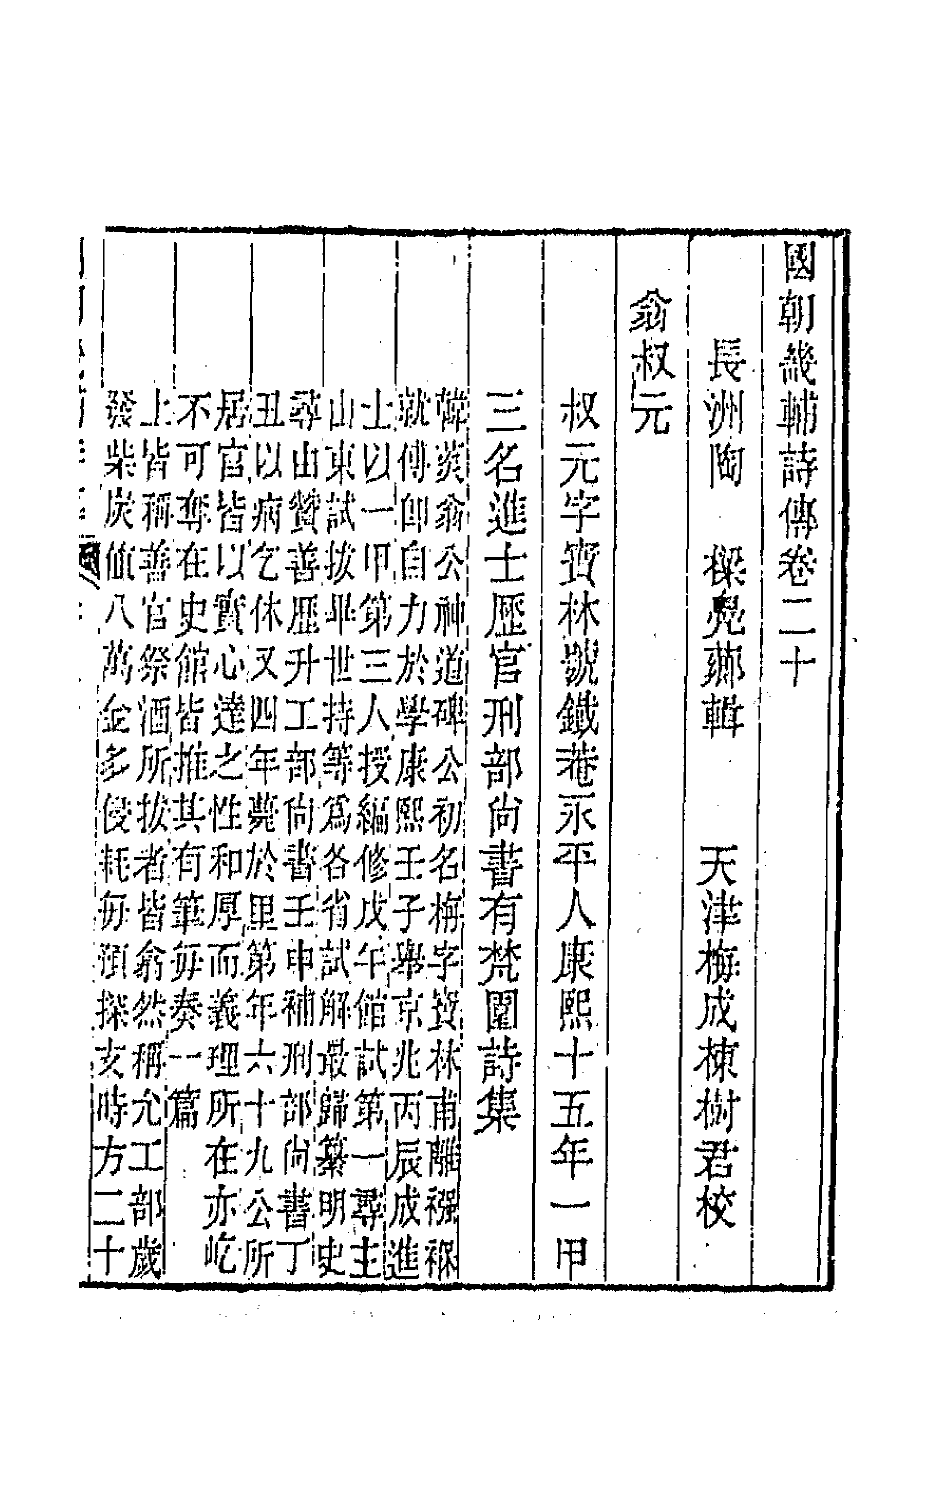 國朝畿輔詩傳卷二十
長洲陶　樑鳧薌輯　　天津梅成棟樹君校
翁叔元
叔元字寶林號鐵菴永平人康熙十五年一甲
三名進士歷官刑部尚書有梵園詩集
韓菼翁公神道碑公初名栴字寶林甫離襁褓
就傅卽自力於學康熙壬子舉京兆丙辰成進
士以一甲第三人授編修戊午館試第一尋主
山東試拔畢世持等爲各省試解最歸纂明史
尋由贊善歷升工部尚書壬申補刑部尚書丁
丑以病乞休又四年薨於里第年六十九公所
居官皆以實心達之性和厚而義理所在亦屹
不可奪在史館皆推其有筆每奏一篇
上皆稱善官祭酒所拔者皆翕然稱允工部歲
發柴炭値八萬金多侵耗每預探支時方二十